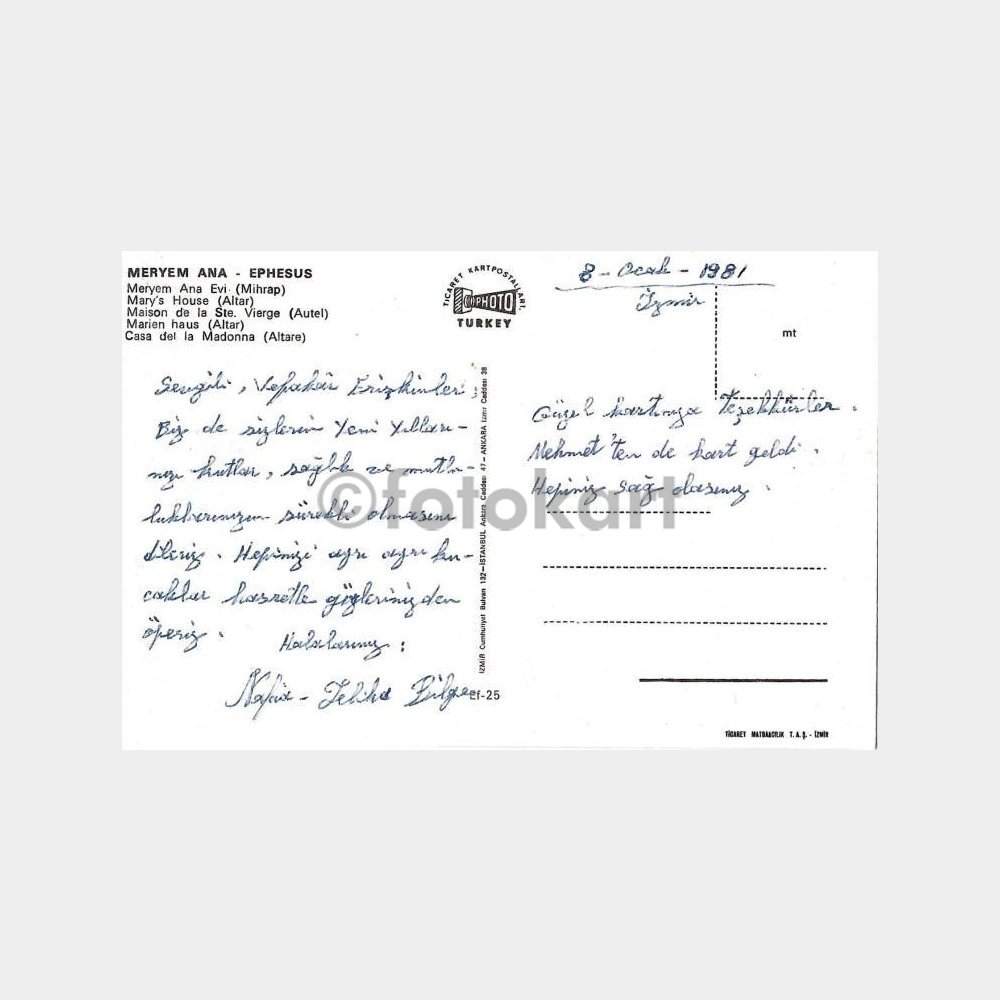 MERYEM ANA - EPHESUS
Meryem Ana Evi (Mihrap)
Mary's House (Altar)
Maison de la Ste. Vierge (Autel)
Marien haus (Altar)
Casa del la Madonna (Altare)
TİCARET KARTPOSTALLARI.
PHOTO
TURKEY
8 - Ocak - 1981
İzmir
mt
Sevgili, Vefakâr
Biz de sizlerin Yeni Yılları-
nızı kutlar, sağlık ve mutlu-
luklarınızın sürekli olmasını
dileriz. Hepinizi ayrı ayrı ku-
caklar hasretle gözlerinizden
öperiz.
Halalarınız:
Bilge
Ef-25
İZMİR Cumhuriyet Bulvarı 132-İSTANBUL Ankara Caddesi 47-ANKARA İzmir Caddesi 38
Güzel kartınıza Teşekkürler.
Mehmet'ten de kart geldi.
Hepiniz sağ olasınız.
TİCARET MATBAACILIK T.A.Ş. - İZMİR
©fotokart